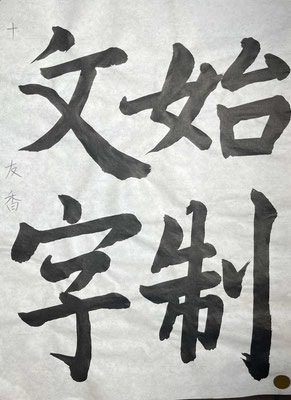 始制
文字
十 友香